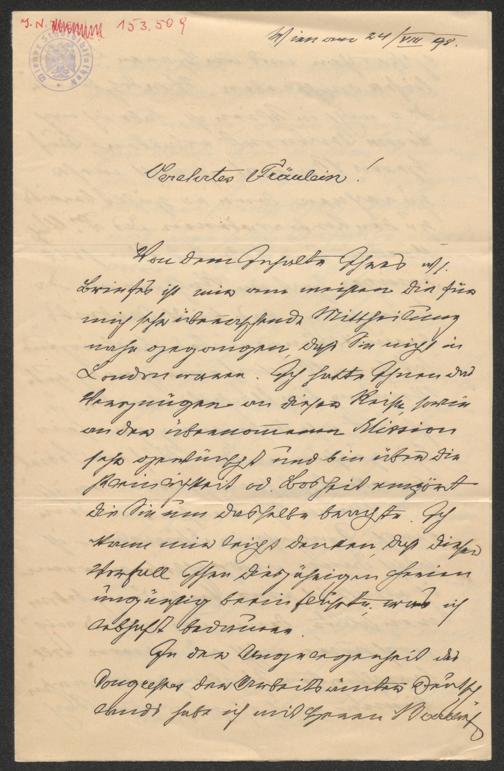 J. N. 153.509
Wien am 24/VIII 98.
Verehrtes Fräulein!
Von dem Inhalte Ihres w/.
Briefes ist mir am meisten die für
mich sehr überraschende Mittheilung
nahe gegangen, daß Sie nicht in
London waren. Ich hatte Ihnen das
Vergnügen an dieser Reise, sowie
an der übernommenen Mission
sehr gewünscht und bin über die
Kleinigkeit od. Bosheit empört
die Sie um dasselbe brachte. Ich
kann mir leicht denken, daß dieser
Vorfall Ihre diesjährigen Ferien
ungünstig beeinflußte, was ich
lebhaft bedauere.
In der Angelegenheit des
Congresses der Arbeitsämter Deutsch
lands habe ich mit Herrn